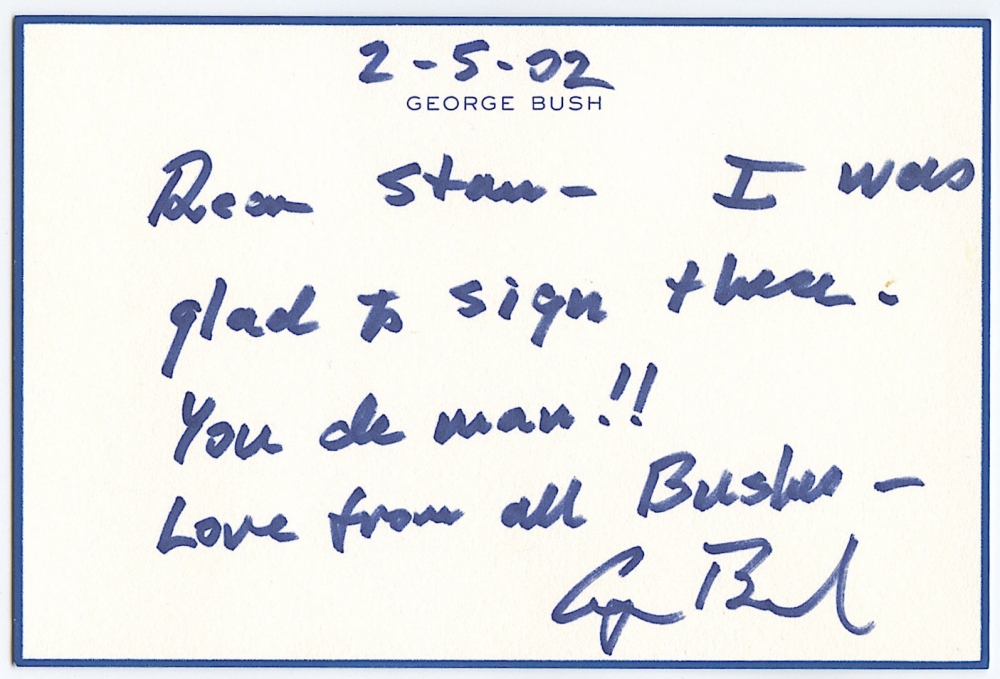 2-5-02
GEORGE BUSH
Dear Stan- I was
glad to sign these.
You de man!!
Love from all Bushes -
G Bush